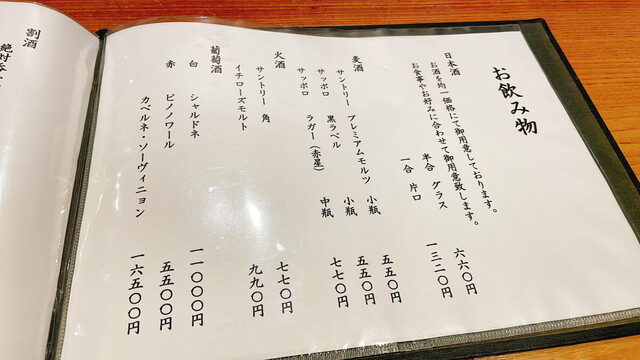 お飲み物
日本酒
お酒を均一価格にて御用意しております。
お食事やお好みに合わせて御用意致します。
半合 グラス 六六〇円
一合 片口 一三二〇円
麦酒
サントリー プレミアムモルツ 小瓶 五五〇円
サッポロ 黒ラベル 小瓶 五五〇円
サッポロ ラガー（赤星） 中瓶 七七〇円
火酒
サントリー 角 七七〇円
イチローズモルト 九九〇円
葡萄酒
白 シャルドネ 一一〇〇〇円
赤 ピノノワール 五五〇〇円
カベルネ・ソーヴィニョン 一六五〇〇円
割酒